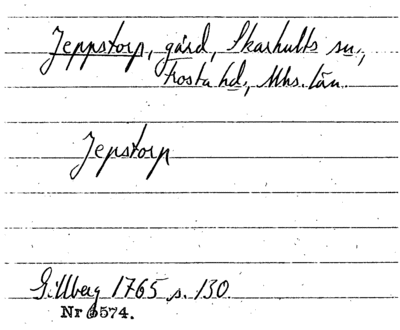 Jeppstorp, gård, Skarhults sn.,
Frosta hd., Mhs. län.
Jepstorp
Gillberg 1765 s. 130.
Nr 6574.